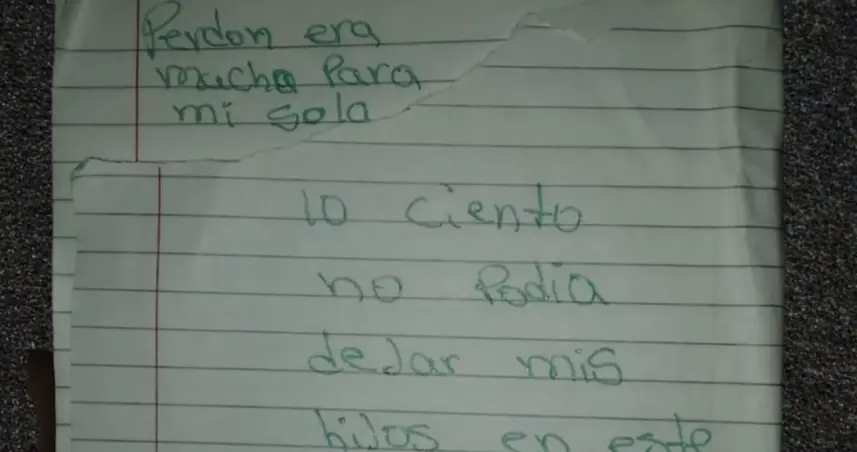 Perdon era
mucho Para
mi sola
lo ciento
no Podia
dejar mis
hijos en este